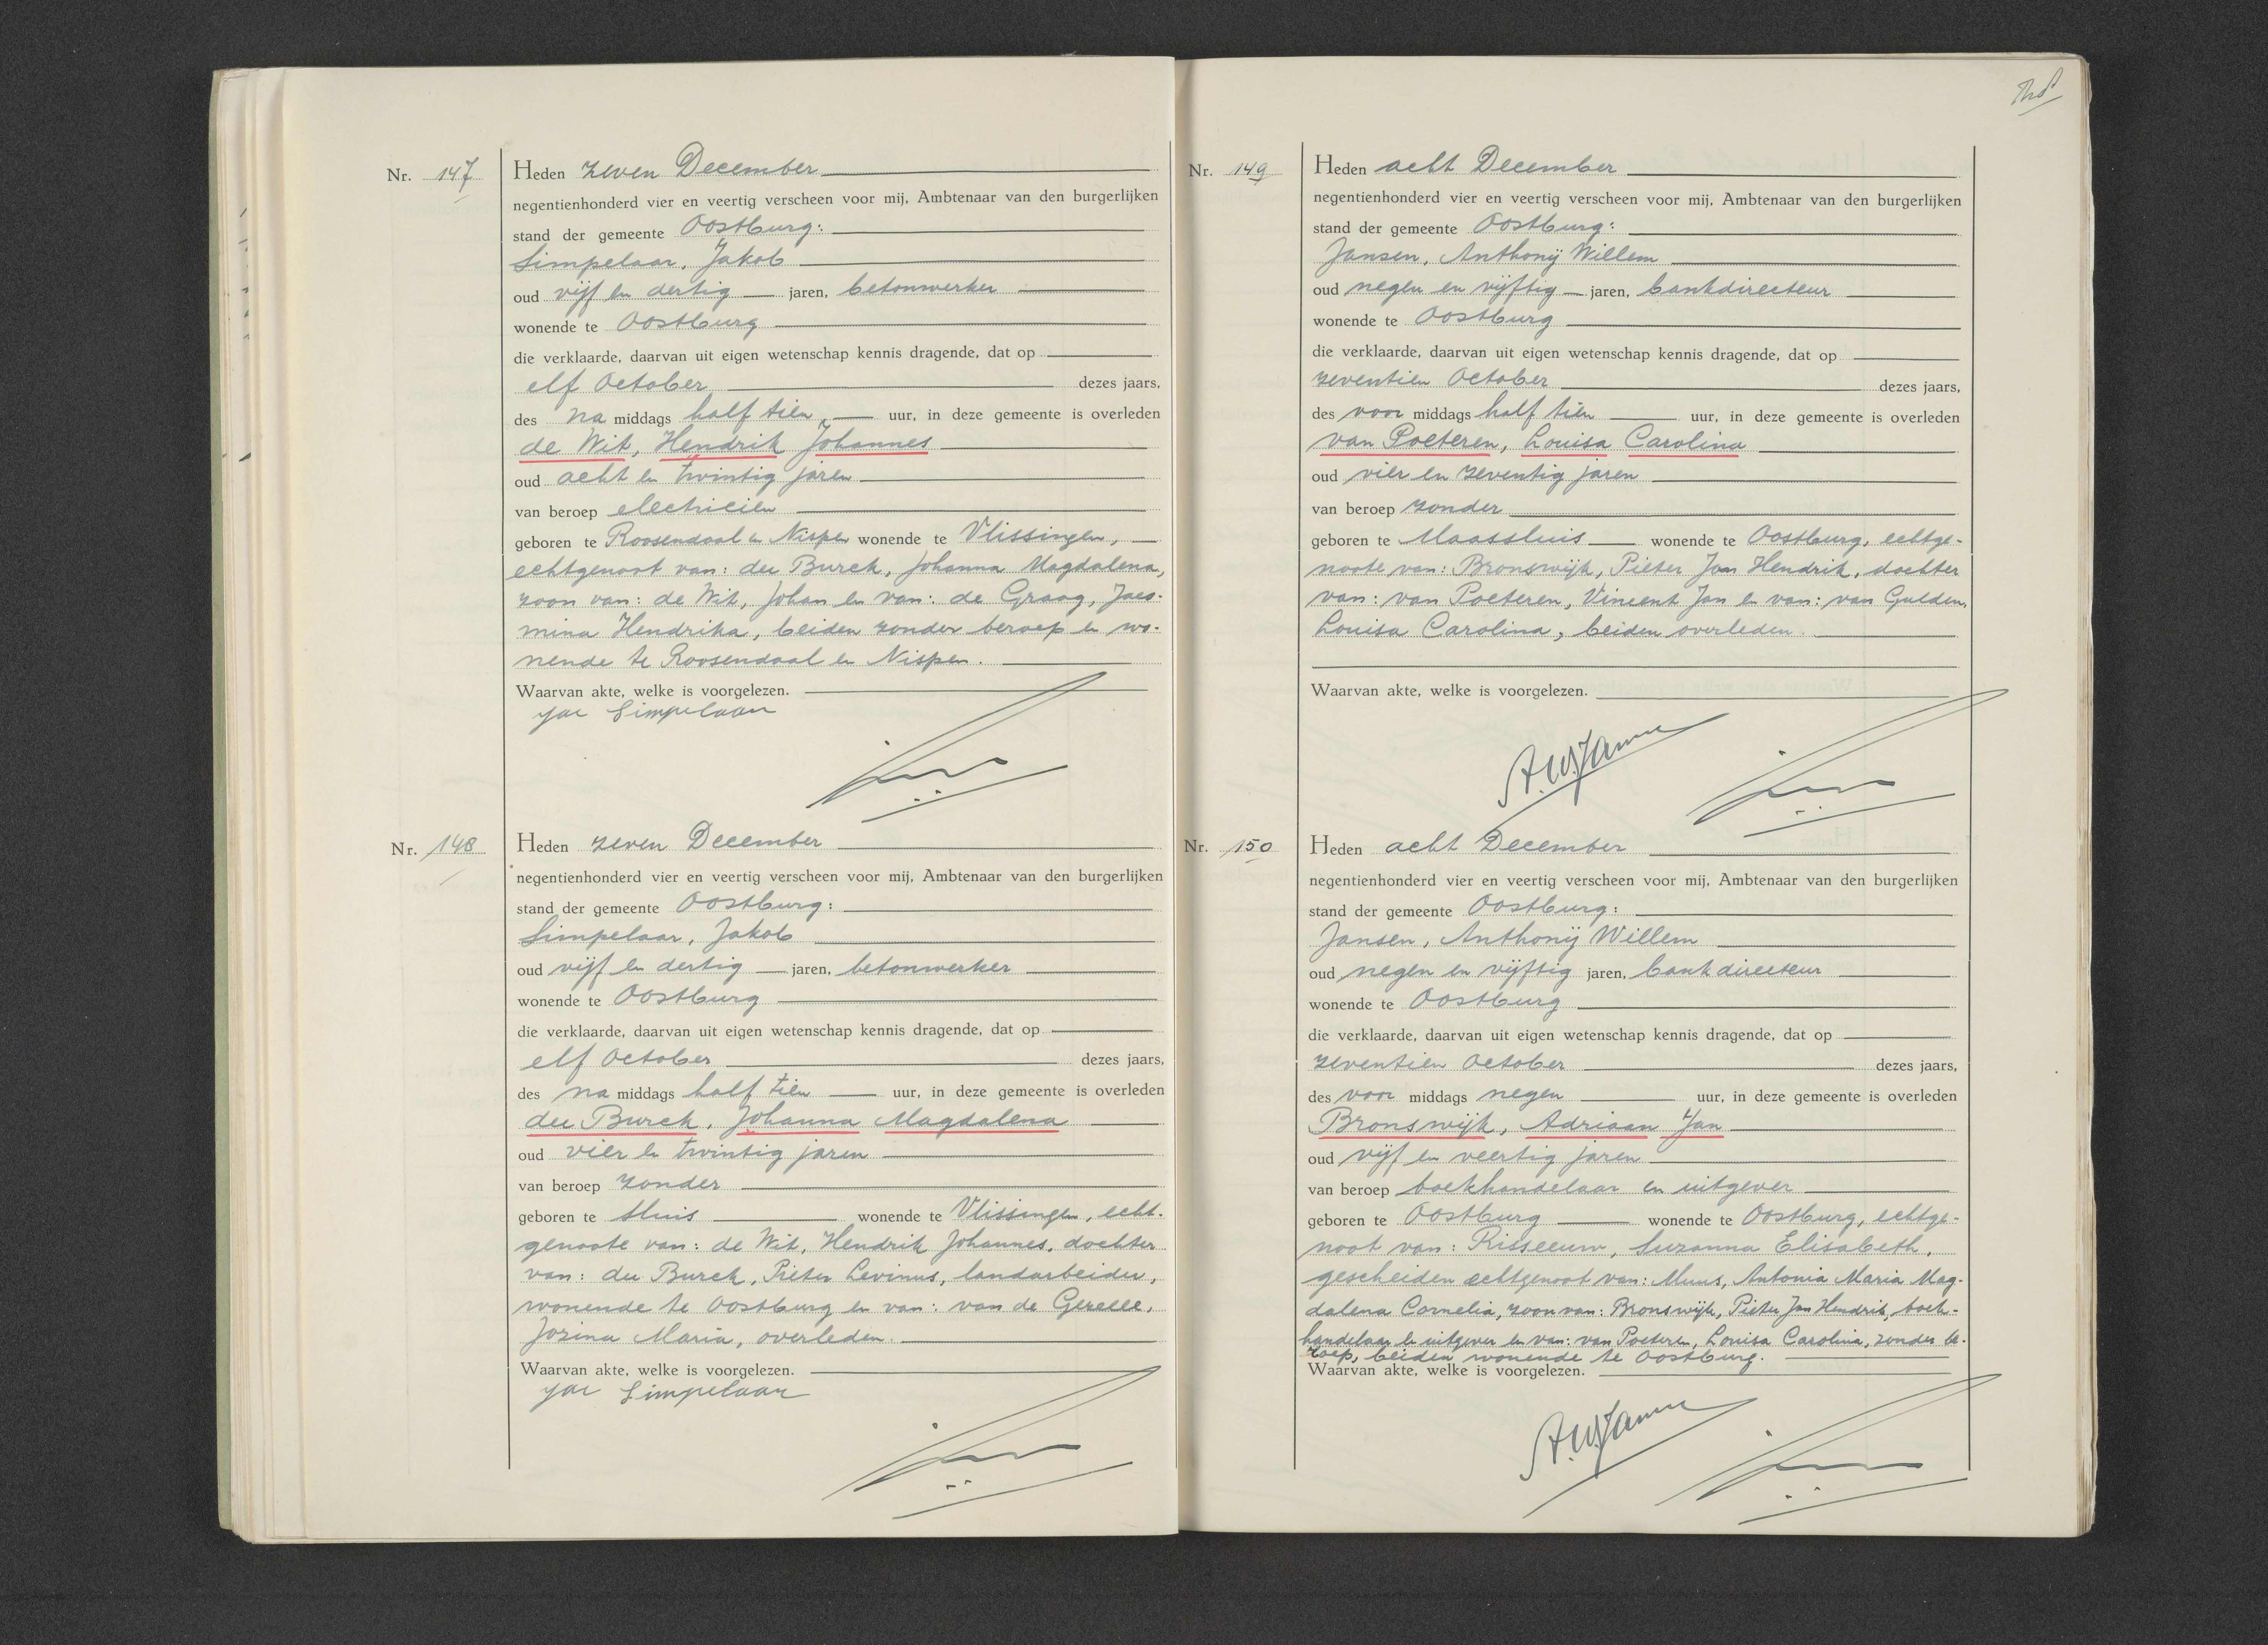 Nr. 147
Heden zeven December
negentienhonderd vier en veertig verscheen voor mij, Ambtenaar van den burgerlijken
stand der gemeente Oostburg:
Simpelaar, Jakob
oud vijf en dertig jaren, betonwerker
wonende te Oostburg
die verklaarde, daarvan uit eigen wetenschap kennis dragende, dat op
elf October dezes jaars,
des na middags half tien uur, in deze gemeente is overleden
de Wit, Hendrik Johannes
oud acht en twintig jaren
van beroep electricien
geboren te Roosendaal en Nispen wonende te Vlissingen,
echtgenoot van: de Burck, Johanna Magdalena,
zoon van: de Wit, Johan en van: de Graag, Jacomina
Hendrika, beiden zonder beroep en wo-
nende te Roosendaal en Nispen.
Waarvan akte, welke is voorgelezen.
Jac Simpelaar
Nr. 148
Heden zeven December
negentienhonderd vier en veertig verscheen voor mij, Ambtenaar van den burgerlijken
stand der gemeente Oostburg:
Simpelaar, Jakob
oud vijf en dertig jaren, betonwerker
wonende te Oostburg
die verklaarde, daarvan uit eigen wetenschap kennis dragende, dat op
elf October dezes jaars,
des na middags half tien uur, in deze gemeente is overleden
de Burck, Johanna Magdalena
oud vier en twintig jaren
van beroep zonder
geboren te Sluis wonende te Vlissingen, echt-
genoote van: de Wit, Hendrik Johannes, dochter
van: de Burck, Pieter Levinus, landarbeider,
wonende te Oostburg en van: van de Gezelle,
Jozina Maria, overleden.
Waarvan akte, welke is voorgelezen.
Jac Simpelaar
Nr. 149
Heden acht December
negentienhonderd vier en veertig verscheen voor mij, Ambtenaar van den burgerlijken
stand der gemeente Oostburg:
Jansen, Anthonij Willem
oud negen en vijftig jaren, bankdirecteur
wonende te Oostburg
die verklaarde, daarvan uit eigen wetenschap kennis dragende, dat op
zeventien October dezes jaars,
des voor middags half tien uur, in deze gemeente is overleden
van Poeteren, Louisa Carolina
oud vier en zeventig jaren
van beroep zonder
geboren te Maassluis wonende te Oostburg, echtge-
noote van: Bronswijk, Pieter Jan Hendrik, dochter
van: van Poeteren, Vincent Jan en van: van Gulden,
Louisa Carolina, beiden overleden.
Waarvan akte, welke is voorgelezen.
A.W. Jansen
Nr. 150
Heden acht December
negentienhonderd vier en veertig verscheen voor mij, Ambtenaar van den burgerlijken
stand der gemeente Oostburg:
Jansen, Anthonij Willem
oud negen en vijftig jaren, bankdirecteur
wonende te Oostburg
die verklaarde, daarvan uit eigen wetenschap kennis dragende, dat op
zeventien October dezes jaars,
des voor middags negen uur, in deze gemeente is overleden
Bronswijk, Adriaan Jan
oud vijf en veertig jaren
van beroep boekhandelaar en uitgever
geboren te Oostburg wonende te Oostburg, echtge-
noot van: Risseeuw, Suzanna Elisabeth,
gescheiden echtgenoot van: Muus, Antonia Maria Mag-
dalena Cornelia, zoon van: Bronswijk, Pieter Jan Hendrik, boek-
handelaar en uitgever en van: van Poeteren, Louisa Carolina, zonder be-
roep, beiden wonende te Oostburg.
Waarvan akte, welke is voorgelezen.
A.W. Jansen